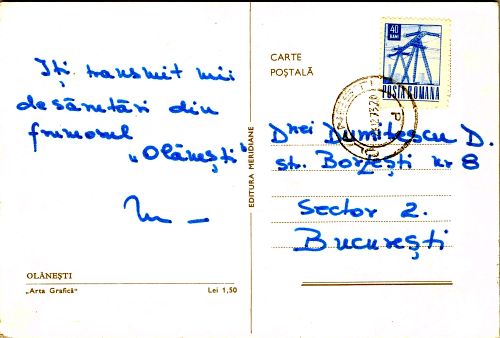 Iți transmit mii
de sănătăți din
frumosul
„Olănești"
OLĂNEȘTI
„Arta Grafică" Lei 1,50
EDITURA MERIDIANE
CARTE
POȘTALĂ
40
BANI
POSTA ROMANA
Dnei Dumitescu D.
str. Borzești nr 8
Sector 2.
București